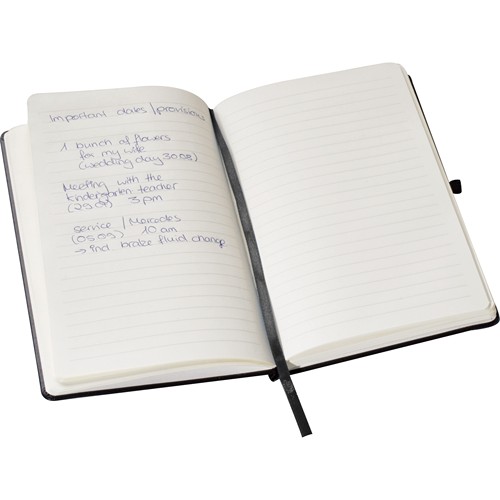 Important dates/provisions
1 bunch of flowers
for my wife
(wedding day 30.08)
Meeting with the
kindergarten teacher
(29.09) 3 pm
service / Mercedes
(05.09) 10 am
→ incl. brake fluid change